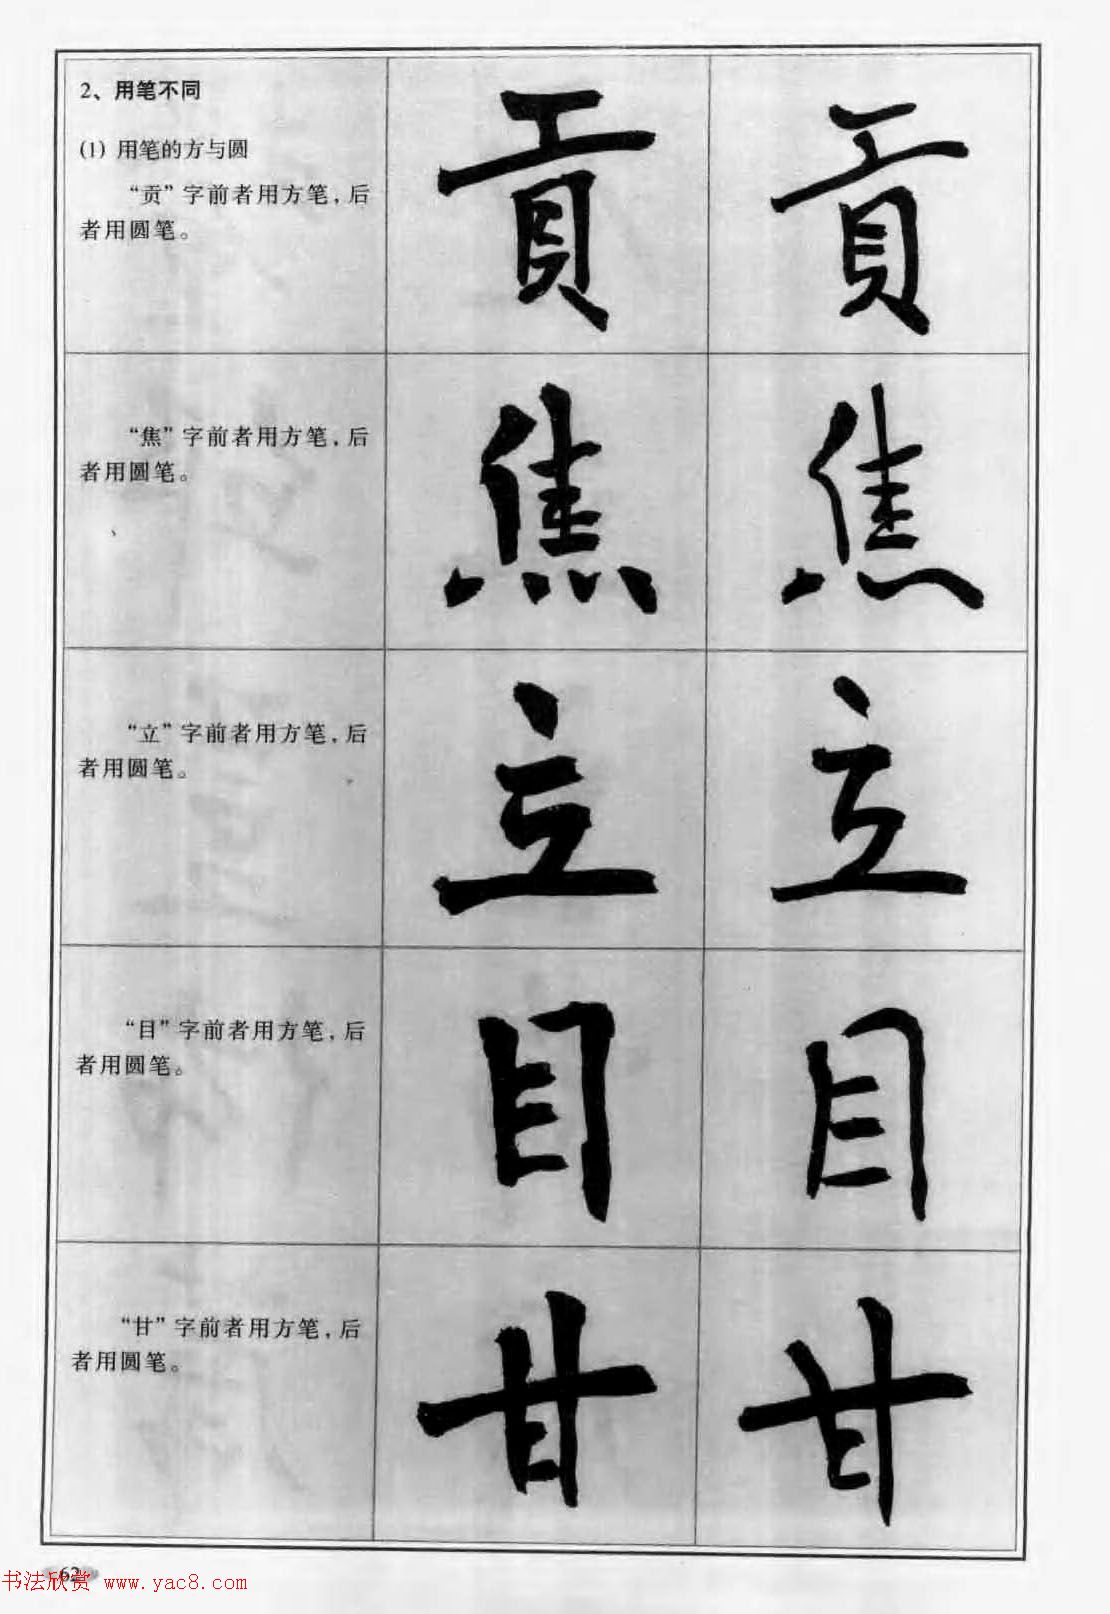 2、用笔不同
(1) 用笔的方与圆
“贡”字前者用方笔，后
者用圆笔。
貢 貢
“焦”字前者用方笔，后
者用圆笔。
焦 焦
“立”字前者用方笔，后
者用圆笔。
立 立
“目”字前者用方笔，后
者用圆笔。
目 目
“甘”字前者用方笔，后
者用圆笔。
甘 甘
62
书法欣赏 www.yac8.com